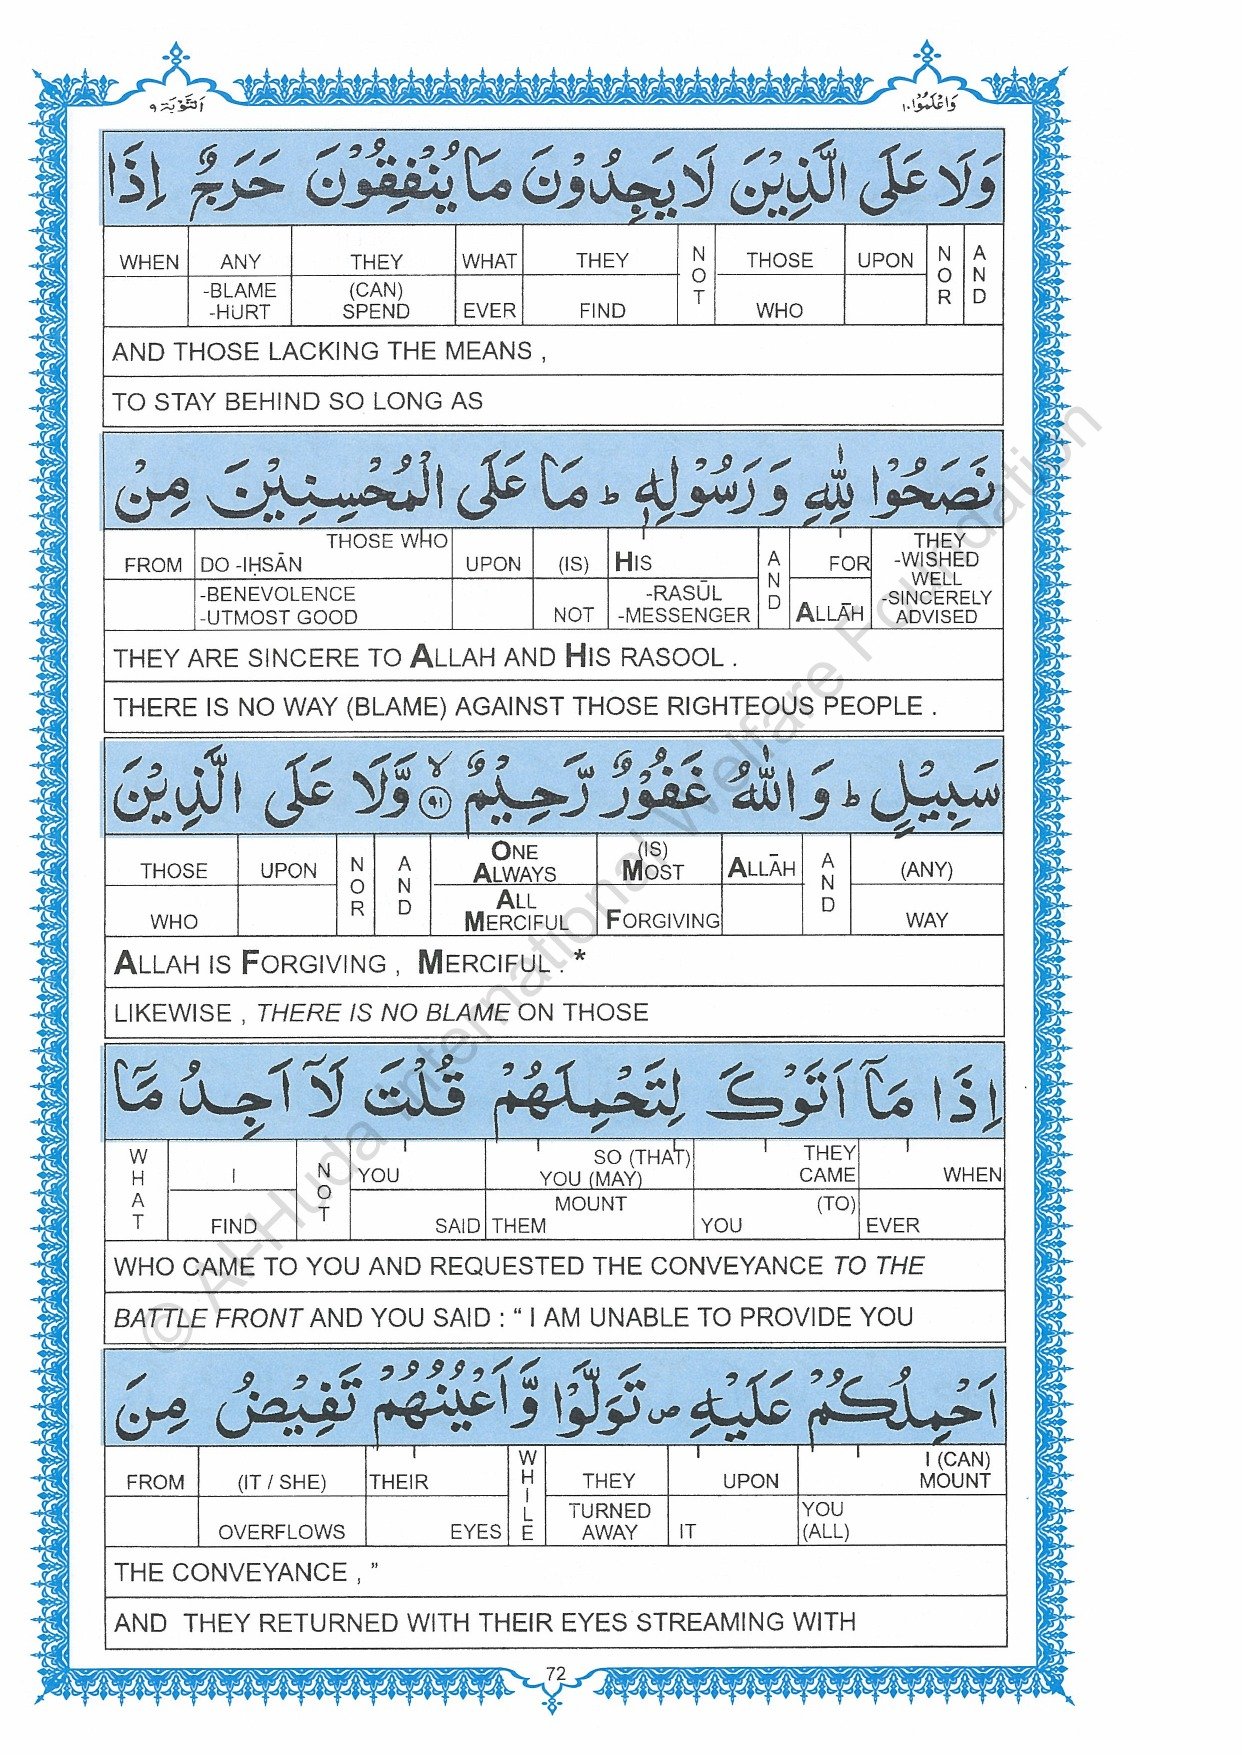 اَلتَّوْبَة ٩
وَاعْلَمُوْا ١٠
وَلَا عَلَى الَّذِيْنَ لَا يَجِدُوْنَ مَا يُنْفِقُوْنَ حَرَجٌ اِذَا
WHEN ANY THEY WHAT THEY NOT THOSE UPON NOR AND
-BLAME -HURT (CAN) SPEND EVER FIND WHO
AND THOSE LACKING THE MEANS ,
TO STAY BEHIND SO LONG AS
نَصَحُوْا لِلّٰهِ وَ رَسُوْلِهٖ ؕ مَا عَلَى الْمُحْسِنِيْنَ مِنْ
FROM THOSE WHO DO -IḤSĀN UPON (IS) HIS AND FOR THEY -WISHED WELL -SINCERELY ADVISED
-BENEVOLENCE -UTMOST GOOD NOT -RASŪL -MESSENGER ALLĀH
THEY ARE SINCERE TO ALLAH AND HIS RASOOL .
THERE IS NO WAY (BLAME) AGAINST THOSE RIGHTEOUS PEOPLE .
سَبِيْلٍ ؕ وَ اللّٰهُ غَفُوْرٌ رَّحِيْمٌ ۙ ﴿٩١﴾ وَّلَا عَلَى الَّذِيْنَ
THOSE UPON NOR AND ONE ALWAYS (IS) MOST ALLĀH AND (ANY)
WHO ALL MERCIFUL FORGIVING WAY
ALLAH IS FORGIVING , MERCIFUL . *
LIKEWISE , THERE IS NO BLAME ON THOSE
اِذَا مَآ اَتَوْكَ لِتَحْمِلَهُمْ قُلْتَ لَآ اَجِدُ مَآ
WHAT I NOT YOU SO (THAT) YOU (MAY) THEY CAME WHEN
FIND SAID MOUNT THEM (TO) YOU EVER
WHO CAME TO YOU AND REQUESTED THE CONVEYANCE TO THE
BATTLE FRONT AND YOU SAID : “ I AM UNABLE TO PROVIDE YOU
اَحْمِلُكُمْ عَلَيْهِ ۪ تَوَلَّوْا وَّ اَعْيُنُهُمْ تَفِيْضُ مِنَ
FROM (IT / SHE) THEIR WHILE THEY UPON I (CAN) MOUNT
OVERFLOWS EYES TURNED AWAY IT YOU (ALL)
THE CONVEYANCE , ”
AND THEY RETURNED WITH THEIR EYES STREAMING WITH
72
© Al-Huda International Welfare Foundation